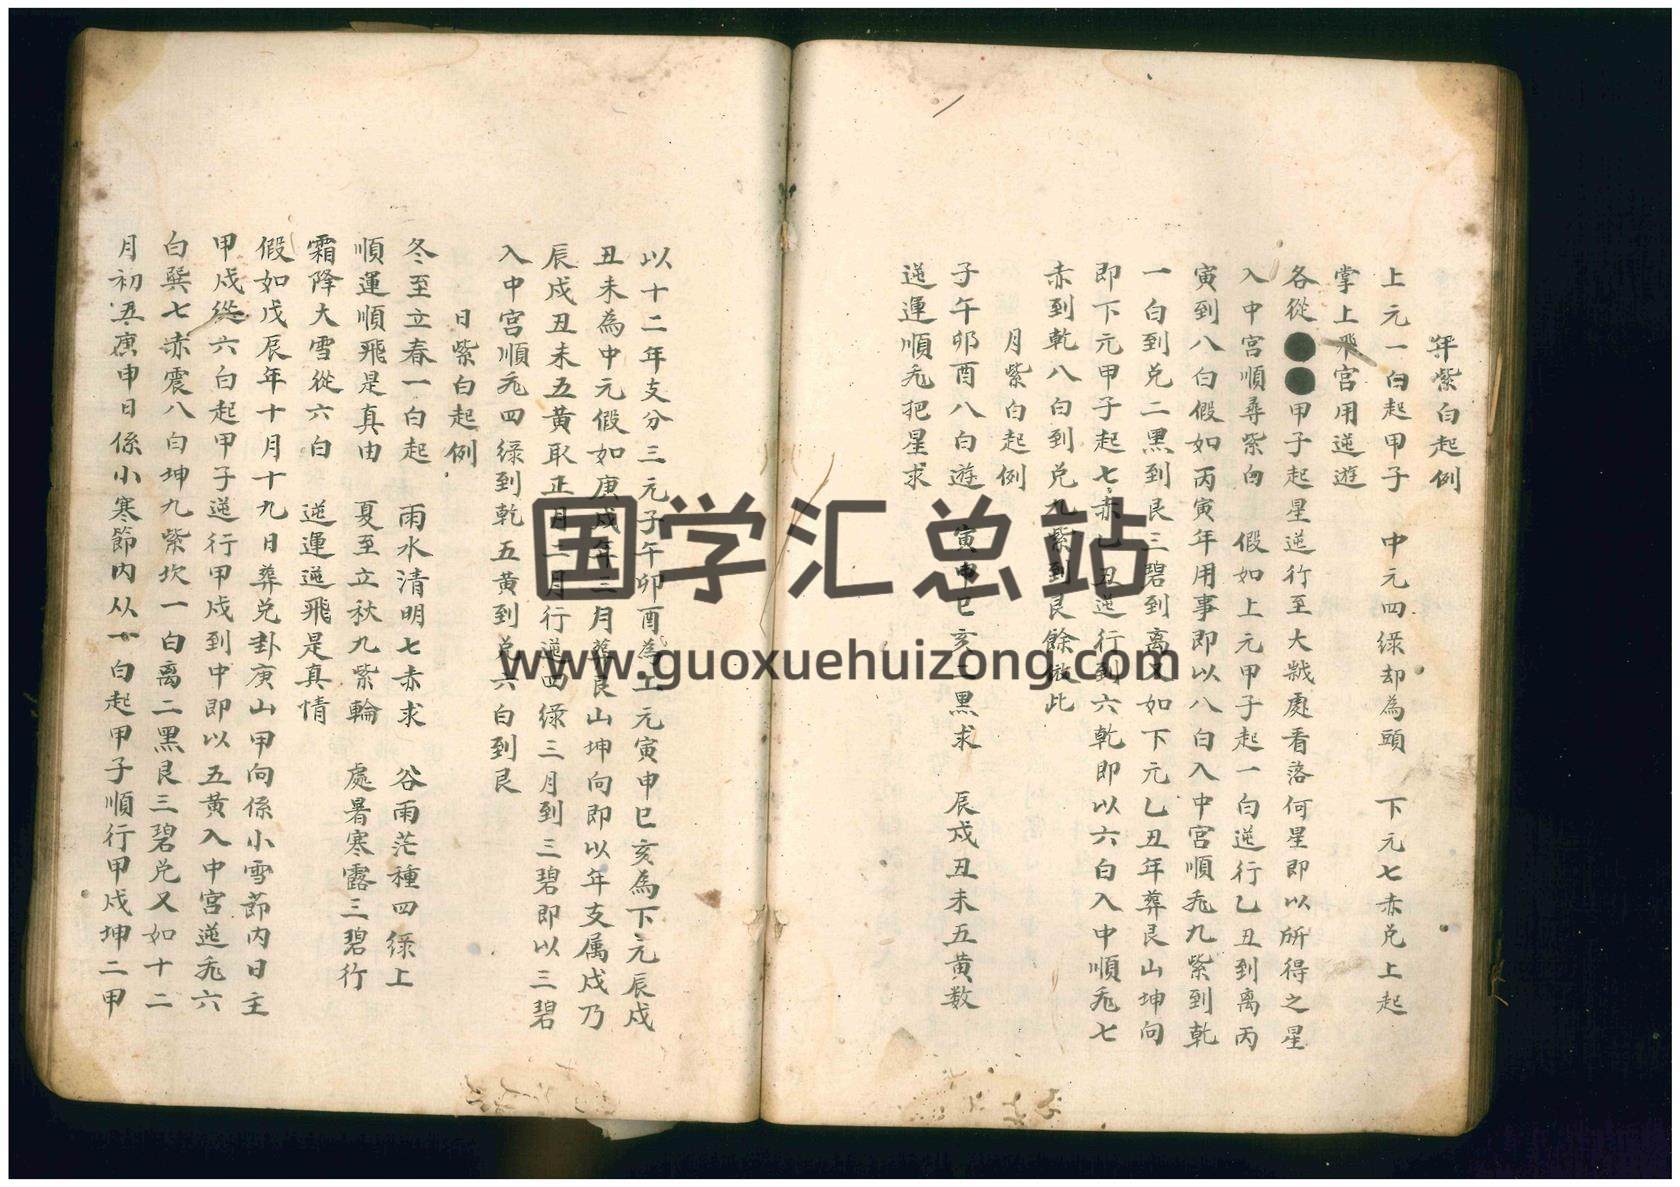 年紫白起例
上元一白起甲子　中元四緑却為頭　下元七赤兑上起
掌上飛宮用逆遊
各從●●甲子起星逆行至大嵗處看落何星即以所得之星
入中宮順尋紫白　假如上元甲子起一白逆行乙丑到離丙
寅到八白假如丙寅年用事即以八白入中宮順飛九紫到乾
一白到兑二黑到艮三碧到離又如下元乙丑年葬艮山坤向
即下元甲子起七赤乙丑逆行到六乾即以六白入中順飛七
赤到乾八白到兑九紫到艮餘倣此
月紫白起例
子午卯酉八白遊　寅申巳亥二黑求　辰戍丑未五黄数
逆運順飛把星求
以十二年支分三元子午卯酉為上元寅申巳亥為下元辰戍
丑未為中元假如庚戍年三月葬艮山坤向即以年支属戍乃
辰戍丑未五黄取正月二月行逆四緑三月到三碧即以三碧
入中宮順飛四緑到乾五黄到兑六白到艮
日紫白起例
冬至立春一白起　雨水清明七赤求　谷雨茫種四緑上
順運順飛是真由　夏至立秋九紫輪　處暑寒露三碧行
霜降大雪從六白　逆運逆飛是真情
假如戊辰年十月十九日葬兑卦庚山甲向係小雪節内日主
甲戍從六白起甲子逆行甲戍到中即以五黄入中宮逆飛六
白巽七赤震八白坤九紫坎一白离二黑艮三碧兑又如十二
月初五庚申日係小寒節内从一白起甲子順行甲戍坤二甲
国学汇总站
www.guoxuehuizong.com